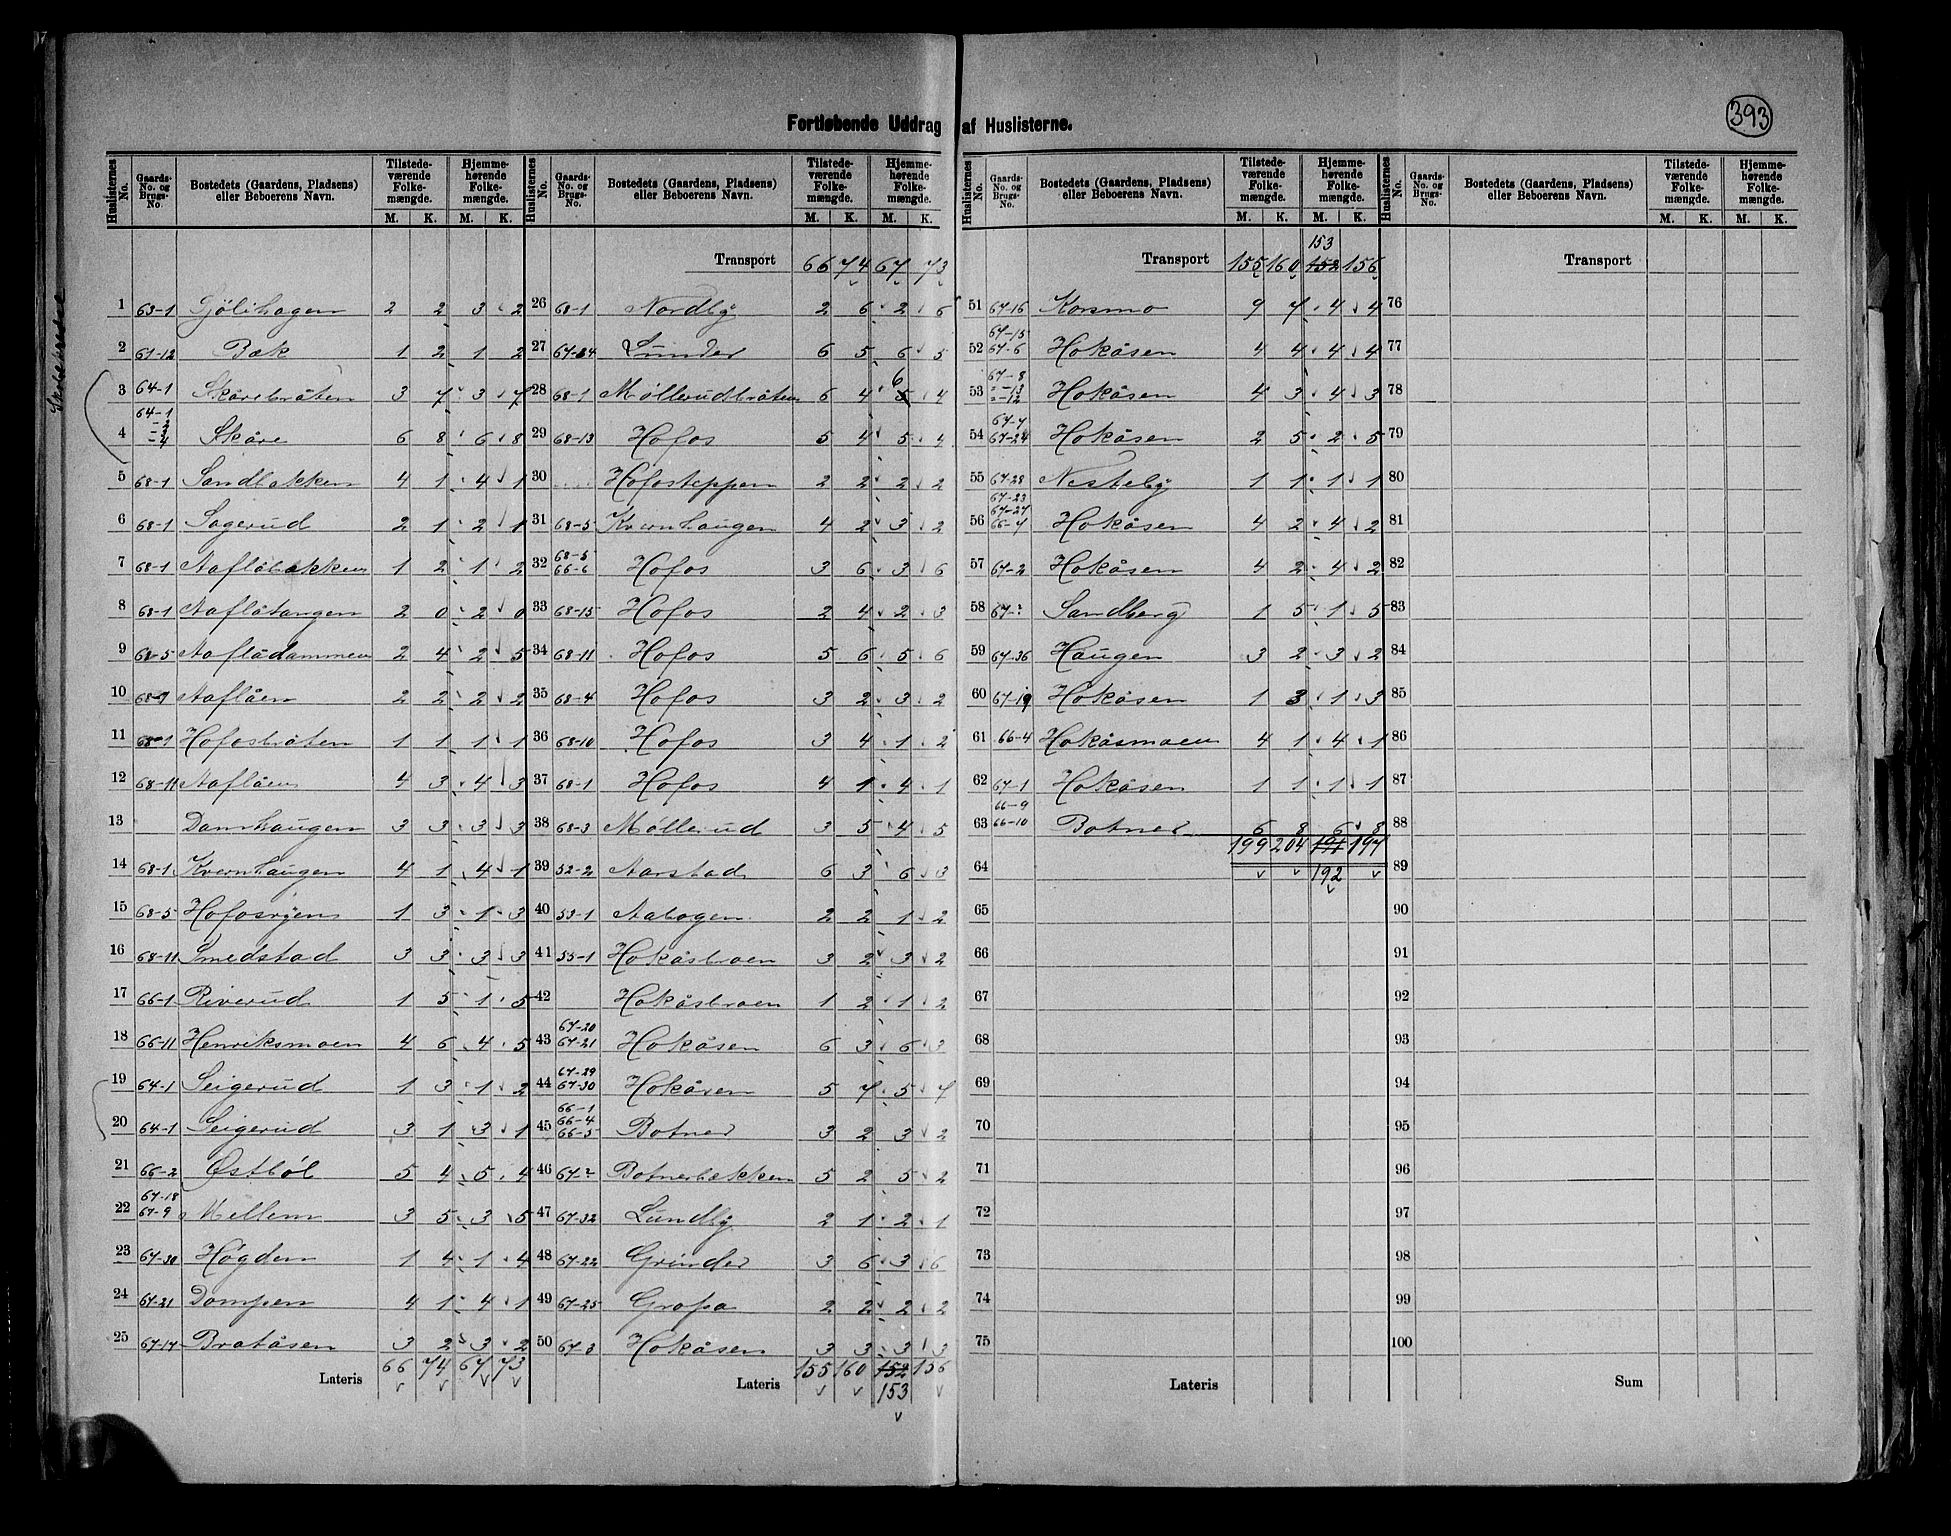 393
Fortløbende Uddrag af Huslisterne.
Huslisternes No. Gaards-No. og Brugs-No. Bostedets (Gaardens, Pladsens) eller Beboerens Navn. Tilstedeværende Folkemængde. M. K. Hjemmehørende Folkemængde. M. K.
1 63-1 2 2 3 2
2 67-12 Bæk 1 2 1 2
3 64-1 Skårebråten 3 7 3 7
4 64-1 -2 -3 -4 Skåre 6 8 6 8
5 68-1 Sandbakken 4 1 4 1
6 68-1 Sagerud 2 1 2 1
7 68-1 Aaflåbakken 1 2 1 2
8 68-1 Aaflåtangen 2 0 2 0
9 68-5 Aaflådammen 2 4 2 5
10 Aaflåen 2 2 2 2
11 68-1 Hofosbråten 1 1 1 1
12 68-11 Aaflåen 4 3 4 3
13 Damhaugen 3 3 3 3
14 68-1 Kvernhaugen 4 1 4 1
15 68-5 Hofosryen 1 3 1 3
16 68-11 Smedstad 3 3 3 3
17 66-1 Riverud 1 5 1 5
18 66-11 Henriksmoen 4 6 4 5
19 64-1 Seigerud 1 3 1 2
20 64-1 Seigerud 3 1 3 1
21 66-2 Østbøl 5 4 5 4
22 67-18 67-9 Mellem 3 5 3 5
23 67-30 Høgden 1 4 1 4
24 67-21 Dampen 4 1 4 1
25 67-17 Bratåsen 3 2 3 2
Lateris 66 74 67 73
Transport 66 74 67 73
26 68-1 Nordby 2 6 2 6
27 67-34 Lunder 6 5 6 5
28 68-1 Møllerudbråten 6 4 6 5 4
29 68-13 Hofos 5 4 5 4
30 Hofosteppen 2 2 2 2
31 68-5 Kvernhaugen 4 2 3 2
32 68-5 66-6 Hofos 3 6 3 6
33 68-15 Hofos 2 4 2 3
34 68-11 Hofos 5 6 5 6
35 68-4 Hofos 3 2 3 2
36 68-10 Hofos 3 4 1 2
37 68-1 Hofos 4 1 4 1
38 68-3 Møllerud 3 5 4 5
39 52-2 Aarstad 6 3 6 3
40 53-1 Aabogen 2 2 1 2
41 55-1 Hokåsbroen 3 2 3 2
42 Hokåsbroen 1 2 1 2
43 67-20 67-21 Hokåsen 6 3 6 3
44 67-29 67-30 Hokåsen 5 7 5 7
45 66-1 66-4 66-5 Botner 3 2 3 2
46 67-? Botnerbækken 5 2 5 2
47 67-32 Lundby 2 1 2 1
48 67-22 Grinder 3 6 3 6
49 67-25 Grofa 2 2 2 2
50 67-3 Hokåsen 3 3 3 3
Lateris 155 160 152 156
153
153
Transport 155 160 152 156
51 67-16 Korsmo 9 7 4 4
52 67-15 67-6 Hokåsen 4 4 4 4
53 67-8 =-13 =-12 Hokåsen 4 3 4 3
54 67-7 67-24 Hokåsen 2 5 2 5
55 67-28 Nesteby 1 1 1 1
56 67-23 67-27 66-7 Hokåsen 4 2 4 2
57 67-2 Hokåsen 4 2 4 2
58 67-? Sandberg 1 5 1 5
59 67-36 Haugen 3 2 3 2
60 67-19 Hokåsen 1 3 1 3
61 66-4 Hokåsmoen 4 1 4 1
62 67-1 Hokåsen 1 1 1 1
63 66-9 66-10 Botner 6 8 6 8
199 204 191 197
64 192
65
66
67
68
69
70
71
72
73
74
75
Lateris
Transport
76
77
78
79
80
81
82
83
84
85
86
87
88
89
90
91
92
93
94
95
96
97
98
99
100
Sum